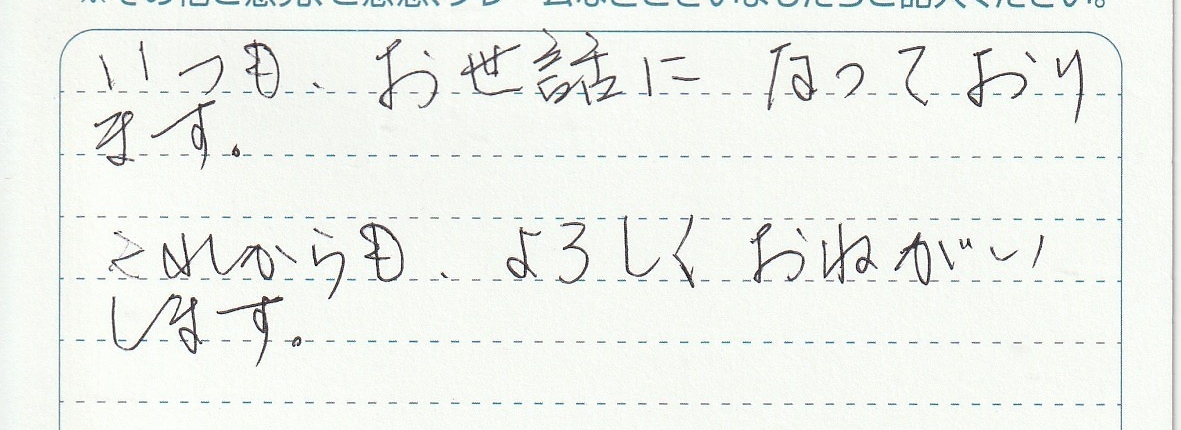 いつも、お世話に なっており
ます。
これからも、よろしく おねがい
します。